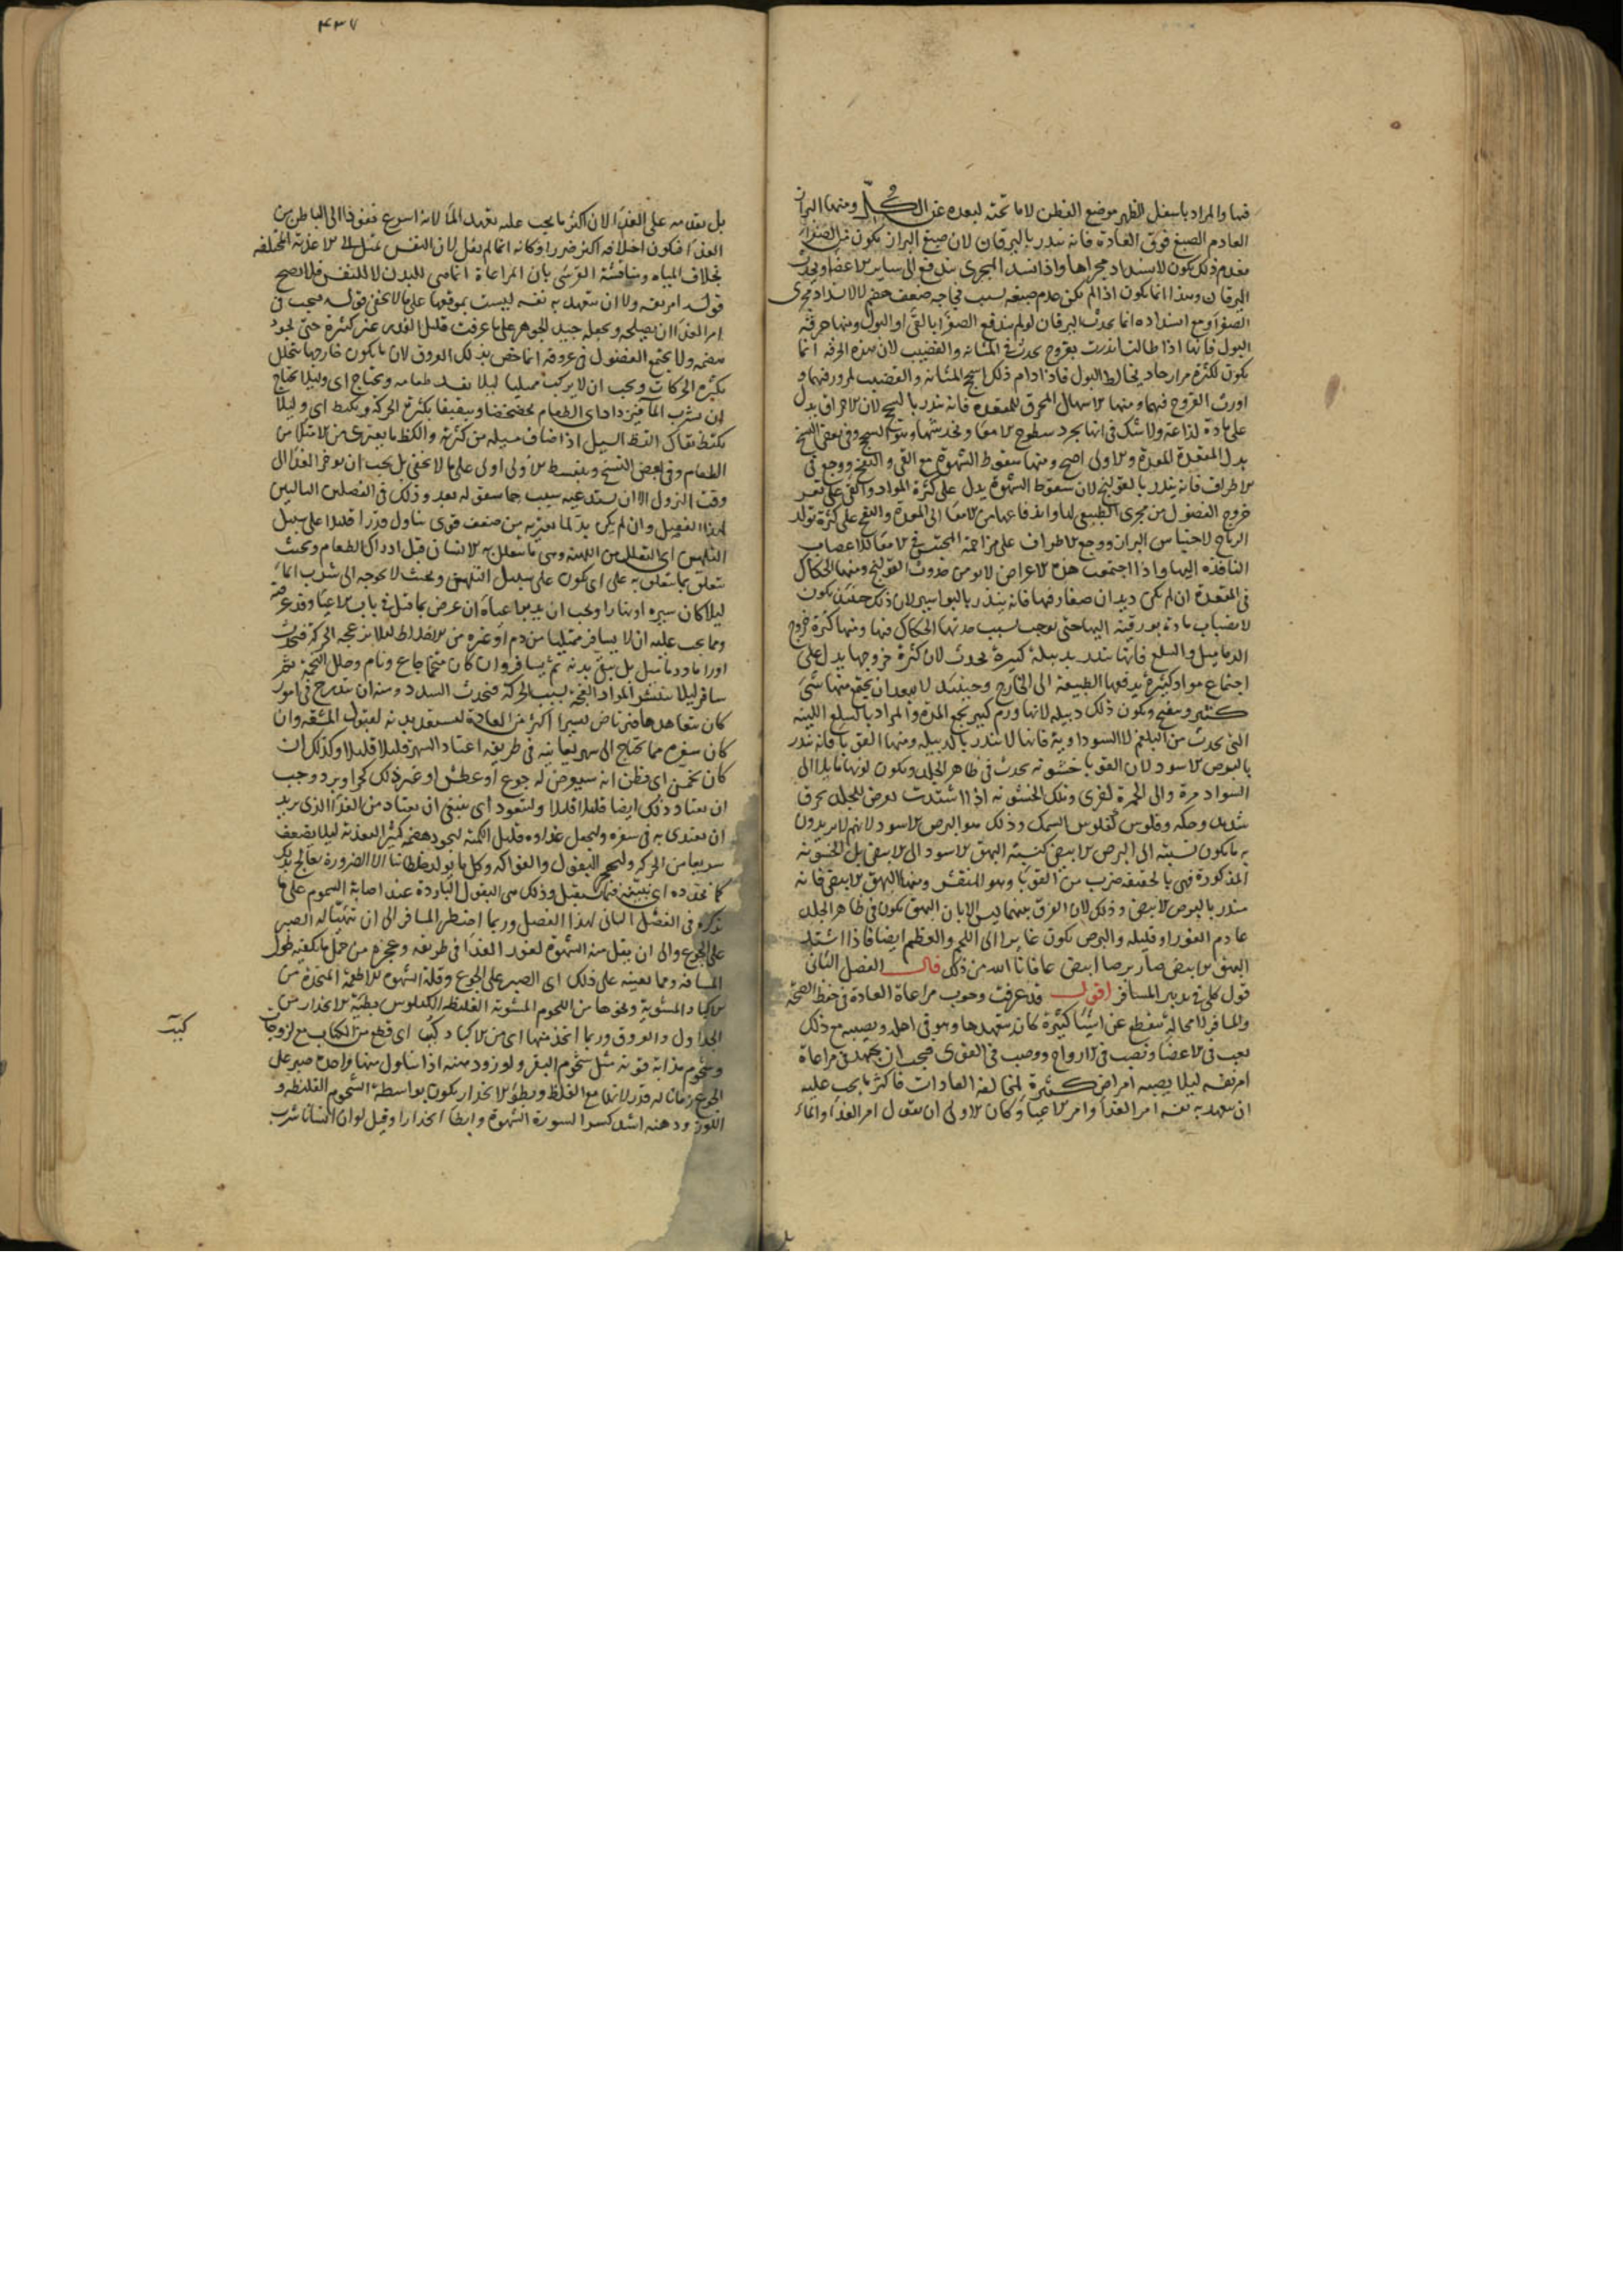 فيها والمراد باسفل الظهر موضع القطن لا ما تحته لبعده عن الكلى ومنها البراز
العادم الصبغ فوق العادة فانه ينذر باليرقان لان صبغ البراز يكون من الصفراء
فعدم ذلك يكون لانسداد مجراها واذا انسد المجرى يندفع الى ساير الاعضا ويحدث
اليرقان وهذا انما يكون اذا لم يكن عدم صبغه لسبب فجاجة ضعف هضم لا لانسداد مجرى
الصفرا ومع انسداده انما يحدث اليرقان لو لم يندفع الصفرا بالقئ او البول ومنها حرقة
البول فانها اذا طالت انذرت بقروح يحدث في المثانه والقضيب لان هذه الحرقه انما
يكون لكثرة مرار حاد يخالط البول فاذا دام ذلك اسحج المثانه والقضيب لمروره فيها و
اورث القروح فيهما ومنها الاسهال المحرق للمقعده فانه ينذر بالسحج لان الاحراق يدل
على مادة لذاعة ولا شك في انها يجرد سطوح الامعا ويخدشها وهو السحج وفي بعض النسخ
بدل المقعدة المعدة والاولى اصح ومنها سقوط الشهوة مع القي والنفخ ووجع في
الاطراف فانه ينذر بالقولنج لان سقوط الشهوة يدل على كثرة المواد والقي على تعسر
خروج الفضول من مجرى الطبيعي لها واندفاعها من الامعا الى المعدة والنفخ على كثرة تولد
الرياح لاحتباس البراز ووجع الاطراف على مزاحمة المحتبس في الامعا للاعصاب
النافذه اليها واذا اجتمعت هذه الاعراض لا يومن حدوث القولنج ومنها الحكاك
في المقعدة ان لم يكن ديدان صغار فيها فانه ينذر بالبواسير لان ذلك حينئذ يكون
لانصباب مادة بورقية اليها حتى يوجب بسبب حدتها الحكاك فيها ومنها كثرة خروج
الدماميل والسلع فانها ينذر بدبيلة كبيرة يحدث لان كثرة خروجها يدل على
اجتماع مواد كثيرة يدفعها الطبيعة الى الخارج وحينئذ لا يبعد ان يجتمع منها شئ
كثير وينفجر ويكون ذلك دبيله لانها ورم كبير يجمع المدة والمراد بالسلع اللينه
التي يحدث من البلغم لا السوداوية فانها لا ينذر بالدبيله ومنها القوبا فانه ينذر
بالبرص الاسود لان القوبا خشونه يحدث في ظاهر الجلد ويكون لونها مايلا الى
السواد مرة والى الحمرة اخرى وتلك الخشونه اذا اشتدت يعرض للجلد تحرق
شديد وحكه وفلوس كفلوس السمك وذلك هو البرص الاسود لانهم لا يريدون
به ما يكون نسبته الى البرص الابيض كنسبة البهق الاسود الى الابيض بل الخشونه
المذكورة فهي بالحقيقه ضرب من القوبا وهو المتقشر ومنها البهق الابيض فانه
ينذر بالبرص الابيض وذلك لان الفرق بينهما ليس الا بان البهق يكون في ظاهر الجلد
عادم الغور او قليله والبرص يكون غايرا الى اللحم والعظم ايضا فاذا اشتد
البهق الابيض صار برصا ابيض عافانا الله من ذلك قال الفصل الثاني
قول كلي في تدبير المسافر اقول قد عرفت وجوب مراعاة العادة في حفظ الصحة
والمسافر لا محالة ينقطع عن اشيا كثيرة كان يتعهدها وهو في اهله ويصيبه مع ذلك
تعب في الاعضا ونصب في الارواح ووصب في القوى فيجب ان يجتهد في مراعاة
امر نفسه ليلا يصيبه امراض كثيرة لمخالفة العادات فاكثر ما يجب عليه
ان يتعهد به نفسه امر الغذا وامر الاعيا وكان الاولى ان يقول امر الغذا والماء
۴۳۷
بل يقدمه على الغذا لان اكثر ما يجب عليه تعهد الما لانه اسرع نفوذا الى الباطن من
الغذا فيكون اختلافه اكثر ضررا وكانه انما لم يقل لان النفس تميل الى الاغذية المختلفه
بخلاف المياه ومناقشة القرشي بان المراعاة انما هي للبدن لا للنفس فلا يصح
قوله امر نفسه ولا ان يتعهد به نفسه ليست بموقعها على ما لا يخفى قوله فيجب في
امر الغذا ان يصلحه ويجعله جيد الجوهر على ما عرفت قليل القدر غير كثيرة حتى يجود
هضمه ولا يجتمع الفضول في عروقه انما خص بذلك العروق لان ما يكون خارجها يتحلل
بكثرة الحركات ويجب ان لا يركب ممتليا ليلا يفسد طعامه ويحتاج اى وليلا يحتاج
ان يشرب الما فيزداد اى الطعام تخضخضا وتبقبقا بكثرة الحركة ويكتظ اى وليلا
يكتظ يقال اكتظ المسيل اذا ضاق مسيله من كثرته والكظة ما يعترى من الامتلا من
الطعام وفي بعض النسخ ويبسط الاولى اولى على ما لا يخفى بل يجب ان يوخر الغذا الى
وقت النزول الا ان يستدعيه سبب مما سنقوله بعد وذلك في الفصلين التاليين
لهذا الفصل وان لم يكن بد لما يعتريه من ضعف قوى يتناول قدرا قليلا على سبيل
التلهين اى التقلل من اللهنة وهي ما يتعلل به الانسان قبل ادراك الطعام وبحيث
يتعلق بما يتعلق به على اى يكون على سبيل التلهين وبحيث لا يحوجه الى شرب الماء
ليلا كان سيره او نهارا ويجب ان يدبر اعياه ان عرض بما قيل في باب الاعيا وقد عرفته
ومما يجب عليه ان لا يسافر ممتليا من دم او غيره من الاخلاط ليلا يزعجه الحركة فيحدث
اوراما ودماميل بل ينقى بدنه ثم يسافر وان كان متخما جاع ونام وحلل التخمة ثم
سافر ليلا ينتشر المواد الفجه بسبب الحركة فتحدث السدد ومنه ان يتدرج في امور
كان يتعاهدها فيرتاض يسيرا يسيرا اكثر من العادة ليستعد بدنه لقبول المشقه وان
كان سفره مما يحتاج الى سهر يعاينه في طريقه اعتاد السهر قليلا قليلا وكذلك ان
كان تخمن اى يظن انه سيعرض له جوع او عطش او غير ذلك كحر او برد وجب
ان يعتاد ذلك ايضا قليلا قليلا وليتعود اى ينبغي ان يعتاد من الغذا الذى يريد
ان يغتذى به في سفره وليجعل غذاوه قليل الكمية ليجود هضمه كثير التغذية ليلا يضعف
سريعا من الحركه وليهجر البقول والفواكه وكل ما يولد خلطا نيا الا لضرورة تعالج بذلك
كما نحدده اى نبينه فيما يستقبل وذلك هي البقول الباردة عند اصابة السموم على ما
نذكره في الفصل الثاني لهذا الفصل وربما اضطر المسافر الى ان يتهيا له الصبر
على الجوع والى ان يقل منه الشهوة لفقد الغذا في طريقه وعجزه من حمل ما يكفيه طول
المسافه ومما يعينه على ذلك اى الصبر على الجوع وقلة الشهوه الاطعمة المتخذة من
الاكباد المشوية ونحوها من اللحوم المشوية الغليظه الكيلوس بطيئة الانحدار من
الجداول والعروق وربما اتخذ منها اى من الاكباد كبب اى قطع من الكباب مع لزوجات
وشحوم مذابة قويه مثل شحوم البقر ولوز ودهنه اذا تناول منها واحدة صبر على
الجوع زمانا له قدر لانها مع الغلظ وبطو الانحدار يكون بواسطة الشحوم الغليظه و
اللوز ودهنه اشد كسرا لسورة الشهوة وابطا انحدارا وقيل لو ان انسانا شرب
كبب